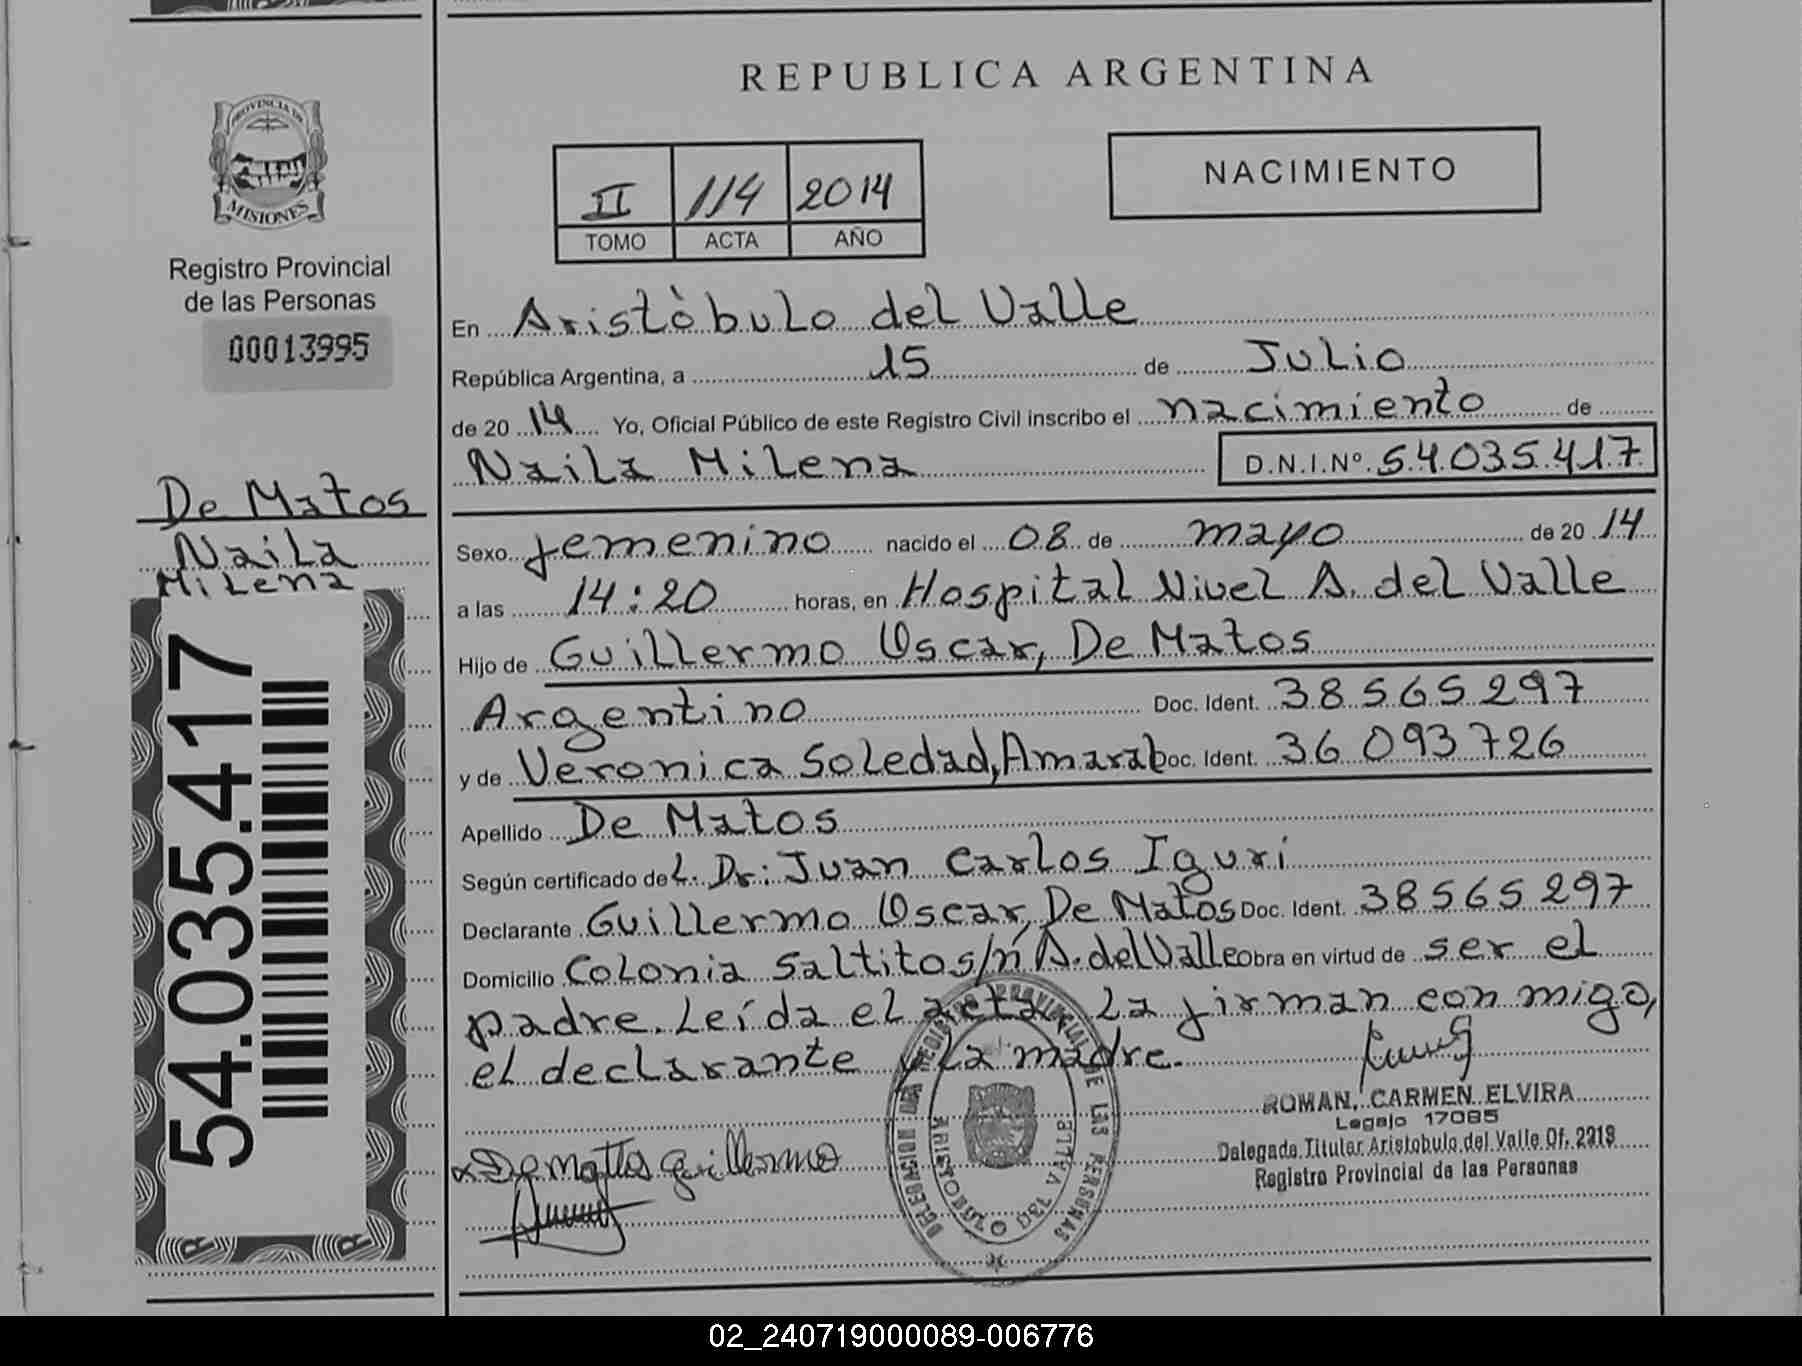 REPUBLICA ARGENTINA
PROVINCIA DE
MISIONES
Registro Provincial
de las Personas
00013995
De Matos
Naila
Milena
54.035.417
II 114 2014
TOMO ACTA AÑO
NACIMIENTO
En Aristòbulo del Valle
República Argentina, a 15 de Julio
de 20 14 Yo, Oficial Público de este Registro Civil inscribo el nacimiento de
Naila Milena D.N.I.Nº 54.035.417
Sexo femenino nacido el 08 de mayo de 20 14
a las 14:20 horas, en Hospital Nivel A. del Valle
Hijo de Guillermo Oscar, De Matos
Argentino Doc. Ident. 38565297
y de Veronica Soledad, Amaral Doc. Ident. 36 093726
Apellido De Matos
Según certificado de L. Dr: Juan Carlos Iguri
Declarante Guillermo Oscar, De Matos Doc. Ident. 38565297
Domicilio Colonia Saltito s/n A. del Valle Obra en virtud de ser el
padre. Leída el acta, La firman con migo,
el declarante y La madre.
ROMAN, CARMEN ELVIRA
Legajo 17085
Delegada Titular Aristobulo del Valle Of. 2219
Registro Provincial de las Personas
De mattos Guillermo
DELEGACION DEL REGISTRO PROVINCIAL DE LAS PERSONAS
ARISTOBULO DEL VALLE
02_240719000089-006776